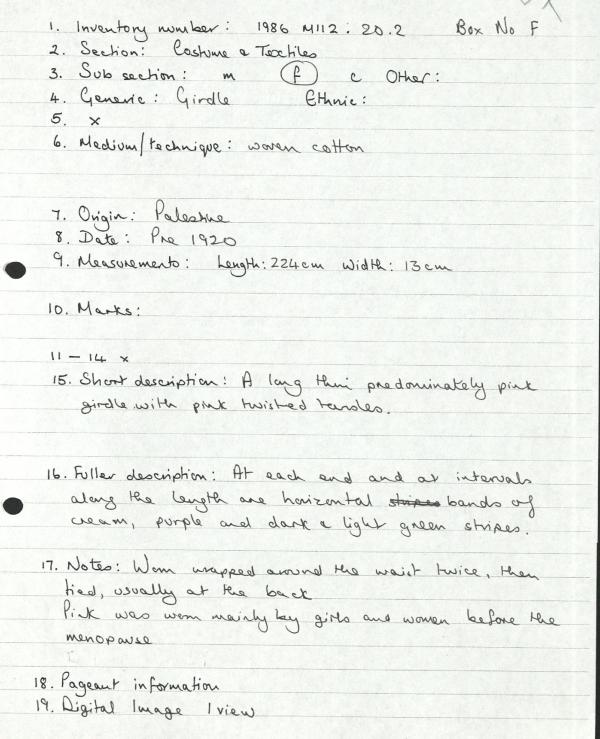 1. Inventory number: 1986 M112: 20.2 Box No F
2. Section: Costume & Textiles
3. Sub section: m f c Other:
4. Generic: Girdle Ethnic:
5. x
6. Medium/technique: woven cotton
7. Origin: Palestine
8. Date: Pre 1920
9. Measurements: Length: 224cm Width: 13cm
10. Marks:
11 - 14 x
15. Short description: A long thin predominately pink
girdle with pink twisted tassles.
16. Fuller description: At each end and at intervals
along the length are horizontal stripes bands of
cream, purple and dark & light green stripes.
17. Notes: Worn wrapped around the waist twice, then
tied, usually at the back
Pink was worn mainly by girls and women before the
menopause
18. Pageant information
19. Digital Image 1 view